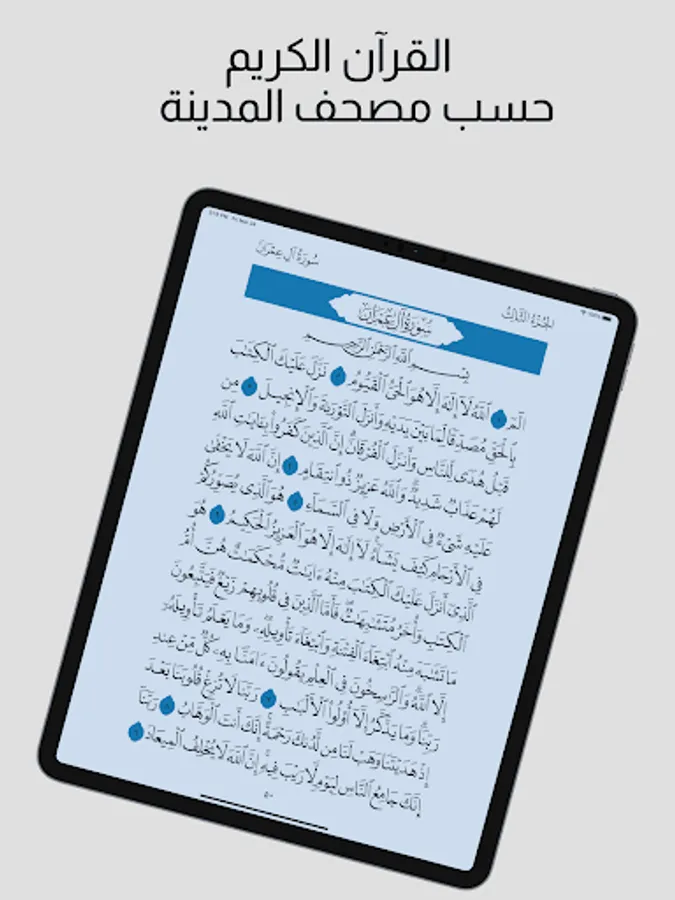 القرآن الكريم
حسب مصحف المدينة
سُورَةُ آلِ عِمْرَانَ
الجُزْءُ الثَّالِثُ
سُورَةُ آلِ عِمْرَانَ
بِسْمِ ٱللَّهِ ٱلرَّحْمَٰنِ ٱلرَّحِيمِ
الٓمٓ ١ ٱللَّهُ لَآ إِلَٰهَ إِلَّا هُوَ ٱلْحَىُّ ٱلْقَيُّومُ ٢ نَزَّلَ عَلَيْكَ ٱلْكِتَٰبَ
بِٱلْحَقِّ مُصَدِّقًا لِّمَا بَيْنَ يَدَيْهِ وَأَنزَلَ ٱلتَّوْرَىٰةَ وَٱلْإِنجِيلَ ٣ مِن
قَبْلُ هُدًى لِّلنَّاسِ وَأَنزَلَ ٱلْفُرْقَانَ إِنَّ ٱلَّذِينَ كَفَرُوا۟ بِـَٔايَٰتِ ٱللَّهِ
لَهُمْ عَذَابٌ شَدِيدٌ وَٱللَّهُ عَزِيزٌ ذُو ٱنتِقَامٍ ٤ إِنَّ ٱللَّهَ لَا يَخْفَىٰ
عَلَيْهِ شَىْءٌ فِى ٱلْأَرْضِ وَلَا فِى ٱلسَّمَآءِ ٥ هُوَ ٱلَّذِى يُصَوِّرُكُمْ
فِى ٱلْأَرْحَامِ كَيْفَ يَشَآءُ لَآ إِلَٰهَ إِلَّا هُوَ ٱلْعَزِيزُ ٱلْحَكِيمُ ٦ هُوَ
ٱلَّذِىٓ أَنزَلَ عَلَيْكَ ٱلْكِتَٰبَ مِنْهُ ءَايَٰتٌ مُّحْكَمَٰتٌ هُنَّ أُمُّ
ٱلْكِتَٰبِ وَأُخَرُ مُتَشَٰبِهَٰتٌ فَأَمَّا ٱلَّذِينَ فِى قُلُوبِهِمْ زَيْغٌ فَيَتَّبِعُونَ
مَا تَشَٰبَهَ مِنْهُ ٱبْتِغَآءَ ٱلْفِتْنَةِ وَٱبْتِغَآءَ تَأْوِيلِهِۦ وَمَا يَعْلَمُ تَأْوِيلَهُۥٓ
إِلَّا ٱللَّهُ وَٱلرَّٰسِخُونَ فِى ٱلْعِلْمِ يَقُولُونَ ءَامَنَّا بِهِۦ كُلٌّ مِّنْ عِندِ
رَبِّنَا وَمَا يَذَّكَّرُ إِلَّآ أُو۟لُوا۟ ٱلْأَلْبَٰبِ ٧ رَبَّنَا لَا تُزِغْ قُلُوبَنَا بَعْدَ
إِذْ هَدَيْتَنَا وَهَبْ لَنَا مِن لَّدُنكَ رَحْمَةً إِنَّكَ أَنتَ ٱلْوَهَّابُ ٨ رَبَّنَآ
إِنَّكَ جَامِعُ ٱلنَّاسِ لِيَوْمٍ لَّا رَيْبَ فِيهِ إِنَّ ٱللَّهَ لَا يُخْلِفُ ٱلْمِيعَادَ ٩
٥٠